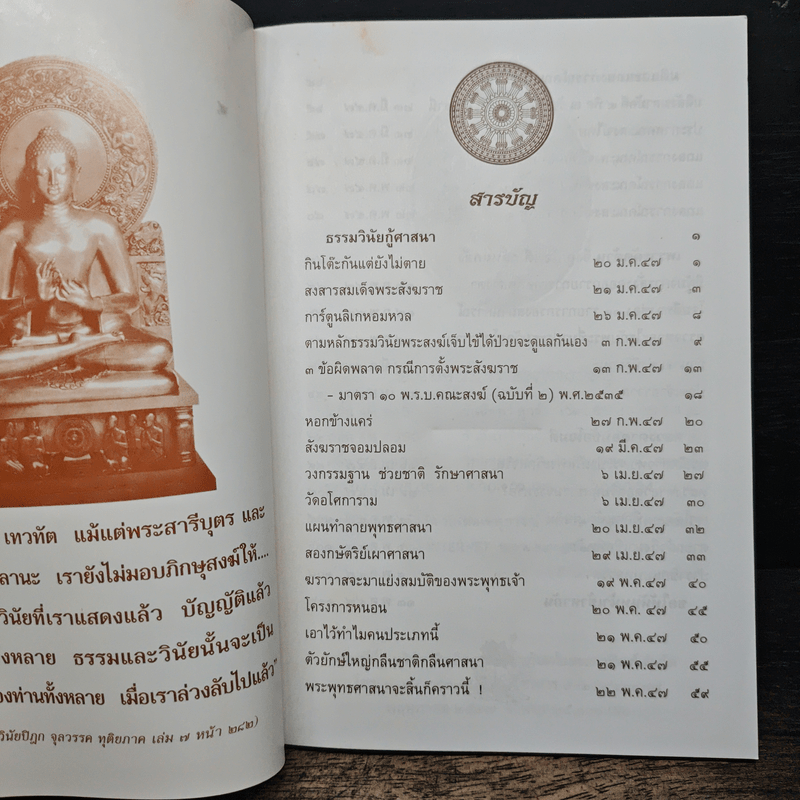 เทวทัต แม้แต่พระสารีบุตร และ
เรายังไม่มอบภิกษุสงฆ์ให้....
วินัยที่เราแสดงแล้ว บัญญัติแล้ว
ธรรมและวินัยนั้นจะเป็น
ท่านทั้งหลาย เมื่อเราล่วงลับไปแล้ว"
วินัยปิฎก จุลวรรค ทุติยภาค เล่ม ๗ หน้า ๒๘๒)
สารบัญ
ธรรมวินัยกู้ศาสนา ๑
กินโต๊ะกันแต่ยังไม่ตาย ๒๐ ม.ค.๔๗ ๑
สงสารสมเด็จพระสังฆราช ๒๑ ม.ค.๔๗ ๓
การ์ตูนลิเกหอมหวล ๒๖ ม.ค.๔๗ ๘
ตามหลักธรรมวินัยพระสงฆ์เจ็บไข้ได้ป่วยจะดูแลกันเอง ๓ ก.พ.๔๗ ๙
๓ ข้อผิดพลาด กรณีการตั้งพระสังฆราช ๑๓ ก.พ.๔๗ ๑๓
- มาตรา ๑๐ พ.ร.บ.คณะสงฆ์ (ฉบับที่ ๒) พ.ศ.๒๕๓๕ ๑๘
หอกข้างแคร่ ๒๗ ก.พ.๔๗ ๒๐
สังฆราชจอมปลอม ๑๙ มี.ค.๔๗ ๒๓
วงกรรมฐาน ช่วยชาติ รักษาศาสนา ๖ เม.ย.๔๗ ๒๗
วัดอโศการาม ๖ เม.ย.๔๗ ๓๐
แผนทำลายพุทธศาสนา ๒๐ เม.ย.๔๗ ๓๒
สองกษัตริย์เผาศาสนา ๒๙ เม.ย.๔๗ ๓๓
ฆราวาสจะมาแย่งสมบัติของพระพุทธเจ้า ๑๙ พ.ค.๔๗ ๔๐
โครงการหนอน ๒๐ พ.ค. ๔๗ ๔๕
เอาไว้ทำไมคนประเภทนี้ ๒๑ พ.ค.๔๗ ๕๐
ตัวยักษ์ใหญ่กลืนชาติกลืนศาสนา ๒๑ พ.ค.๔๗ ๕๕
พระพุทธศาสนาจะสิ้นก็คราวนี้ ! ๒๒ พ.ค.๔๗ ๕๙